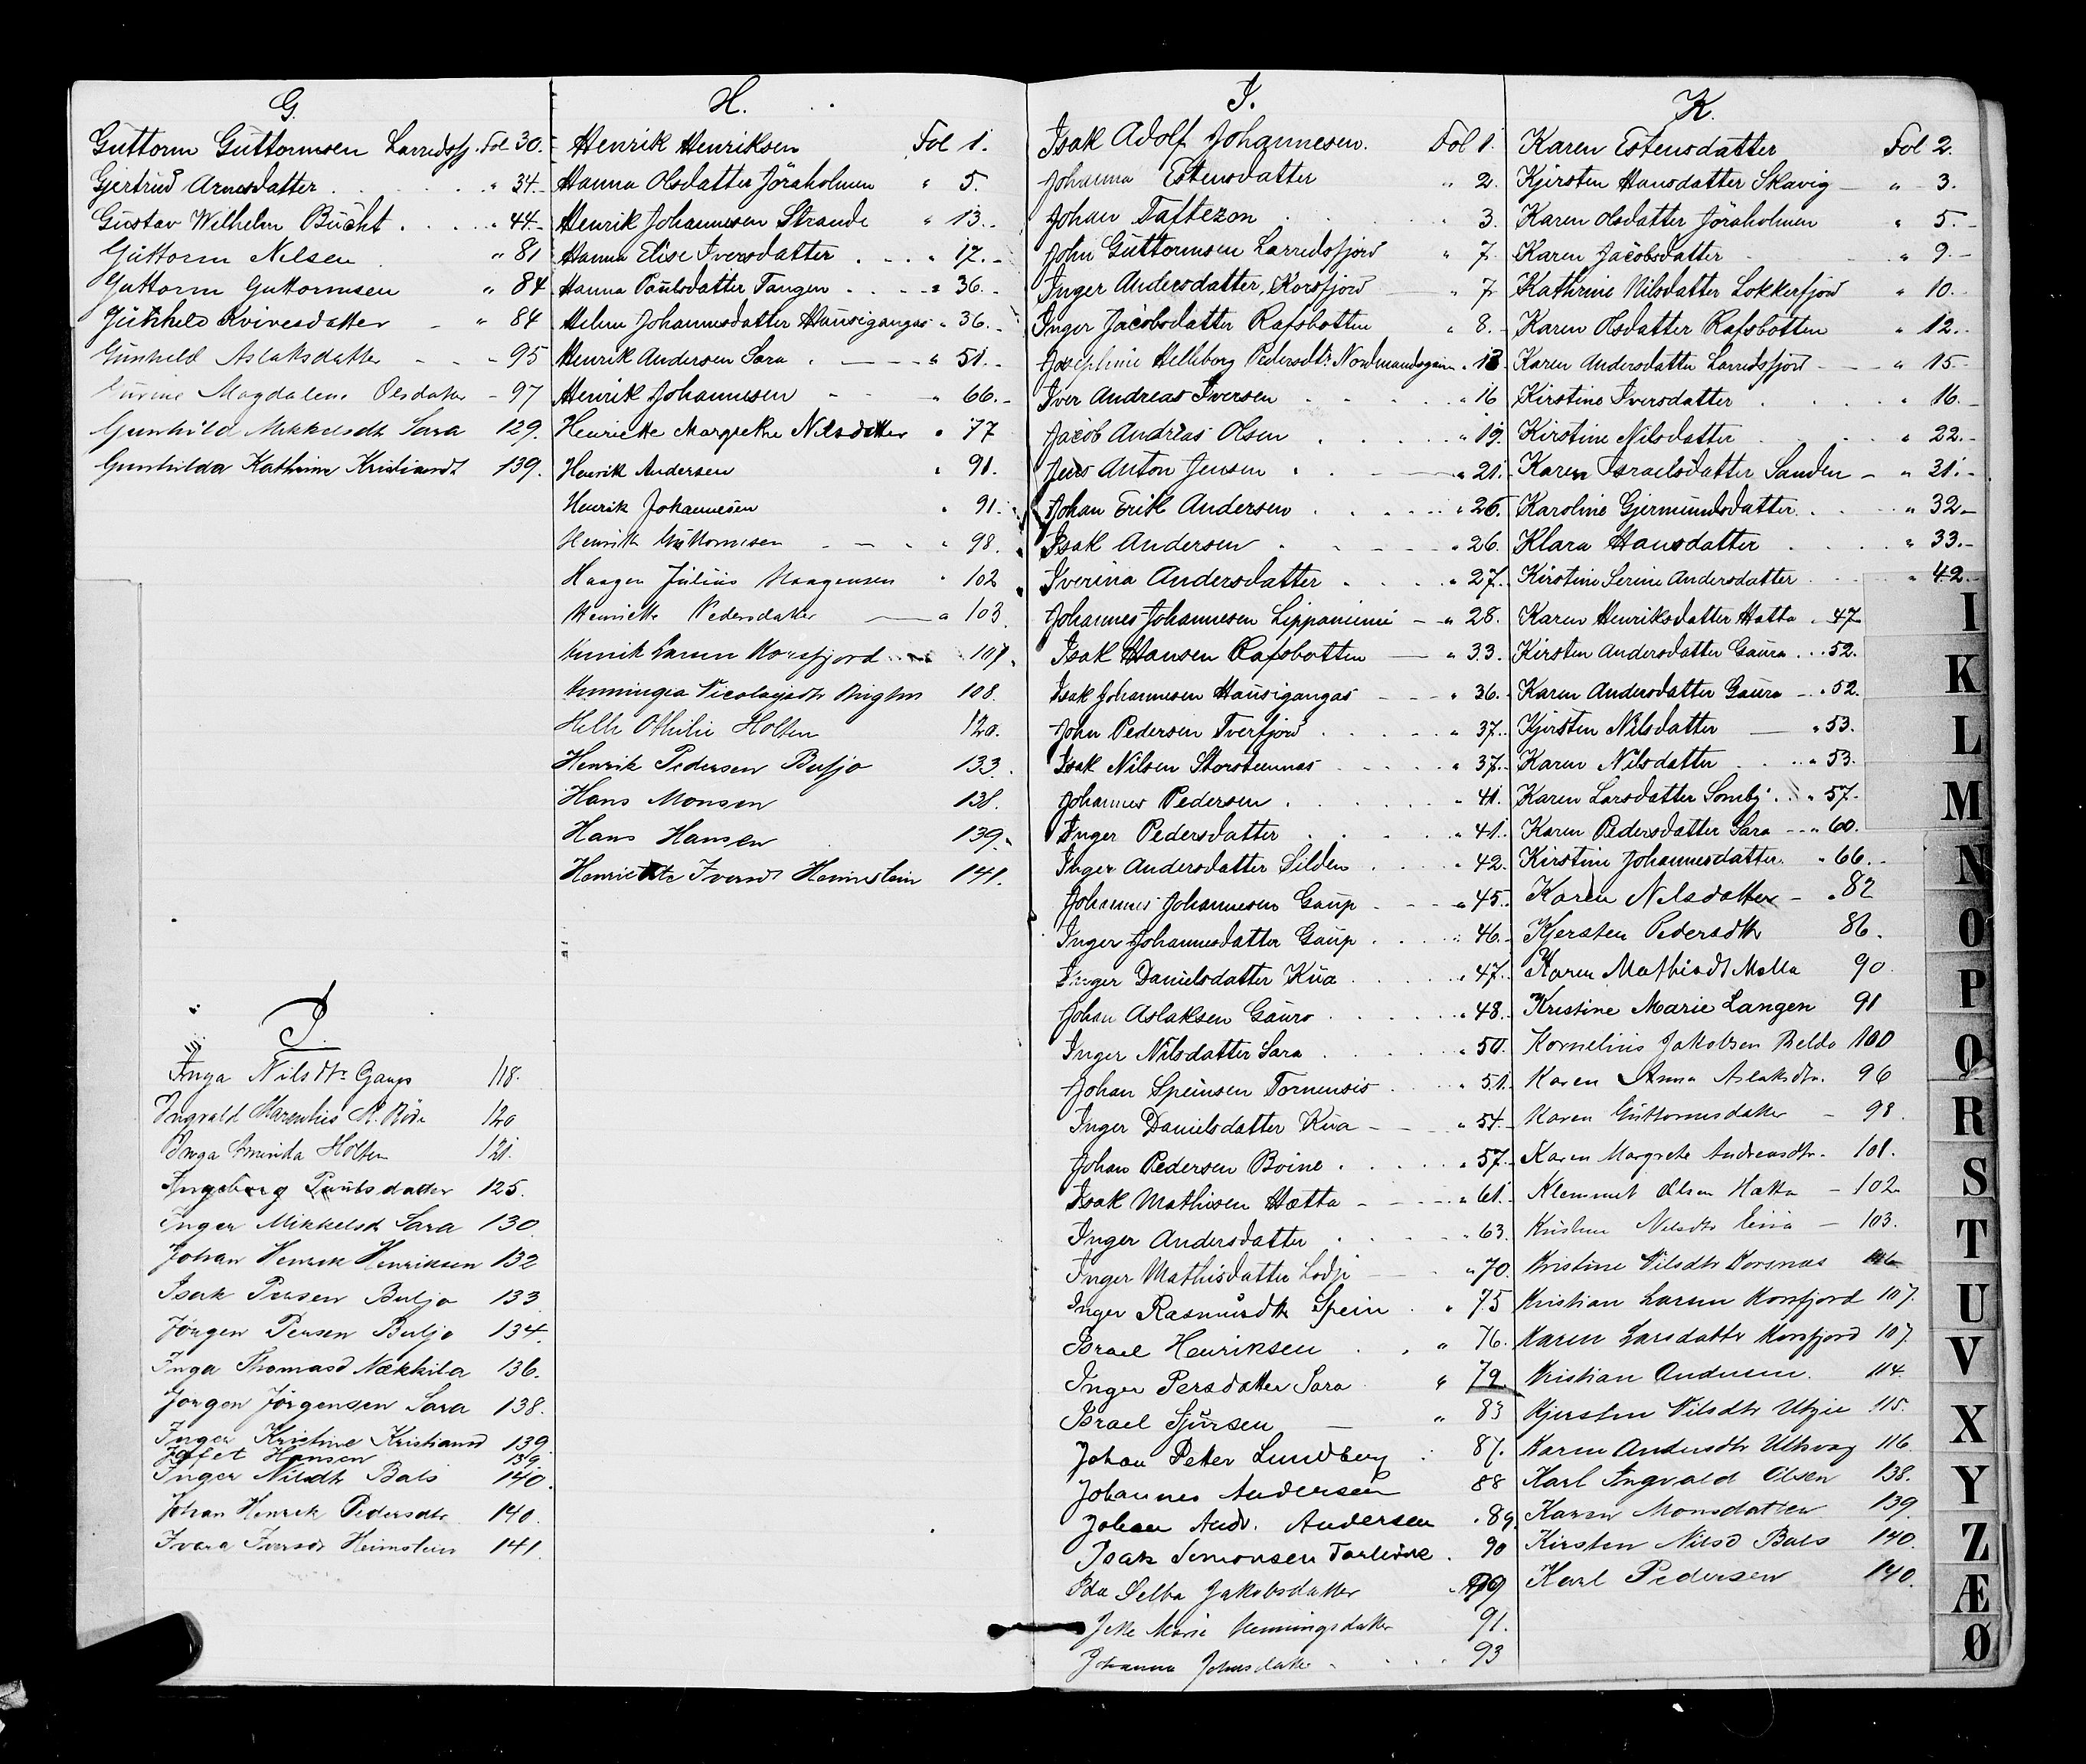 G.
Guttorm Guttormsen Larredsfj. Fol 30.
Gjertrud Arnesdatter . . . " 34.
Gustav Wilhelm Bucht . . . " 44.
Guttorm Nilsen . " 81
Guttorm Guttormsen " 84
Gunhild Kvivesdatter - " 84
Gunhild Aslaksdatter - - - 95
Magdalene Olsdatter - 97
Gunhild Mikkelsdtr Sara 129.
Gunhilda Kathrine Kristiansdt 139.
I.
Inga Nilsdtr Gaup 118.
Ingvald 120
Inga Holten 121.
Ingeborg Paulsdatter 125.
Inger Mikkelsd Sara 130.
Johan Henrik Henriksen 132
Isak Persen Buljo 133
Jørgen Persen Buljo 134.
Inga Thomasd Nækkila 136.
Jørgen Jörgensen Sara 138.
Inger Kristine Kristiansd 139.
Jafet Hansen 139.
Inger Nilsdtr Bals 140.
Johan Henrik Pedersdtr 140.
Ivara Iversdt Heimstein 141.
H.
Henrik Henriksen Fol 1.
Hanna Olsdatter Jöraholmen " 5.
Henrik Johannesen Strande " 13.
Hanna Elise Iversdatter . . . " 17.
Hanna Paulsdatter Tangen . . . " 36.
Helene Johannesdatter Hausigangas " 36.
Henrik Andersen Sara . — " 51.
Henrik Johannesen - - " 66.
Henriette Margrethe Nilsdatter " 77
Henrik Andersen " 91.
Henrik Johannesen " 91.
Henrik Guttormsen - - - " 98.
Haagen Julius Haagensen " 102
Henriette Pedersdatter — " 103
Henrik Larsen Korsfjord 107.
Henningia Nicolaysdtr 108.
Helle Othilie Holten 120.
Henrik Pedersen Buljo 133.
Hans Monsen 138.
Hans Hansen 139.
Henriette Iversdt Heimstein 141.
I.
Isak Adolf Johannesen. Fol 1.
Johanna Estensdatter " 2.
Johan Taftezon . . . . " 3.
John Guttormsen Larredsfjord " 7.
Inger Andersdatter, Korsfjord " 7
Inger Jacobsdatter Rafsbotten " 8.
Josephine Helleborg Pedersdtr. " 13
Iver Andreas Iversen . . . . " 16
Jacob Andreas Olsen . . . . " 19.
Jens Anton Jensen . . — " 21.
Johan Erik Andersen . . . . " 26.
Isak Andersen . . . . " 26.
Iverina Andersdatter . . . . " 27.
Johannes Johannesen Lippaniemi - " 28.
Isak Hansen Rafsbotten — " 33.
Isak Johannesen Hausigangas - - " 36.
John Pedersen Tverfjord . . . . " 37.
Isak Nilsen Storsteennes . . . . " 37.
Johannes Pedersen . . . . " 41.
Inger Pedersdatter . . . . " 41.
Inger Andersdatter Silden . . . " 42.
Johannes Johannesen Gaup - - - " 45.
Inger Johannesdatter Gaup . . . " 46.
Inger Danielsdatter Kua . . . . " 47.
Johan Aslaksen Gauro . . . . " 48.
Inger Nilsdatter Sara . . . . " 50.
Johan Speinsen Tornensis . . . " 51.
Inger Danielsdatter Kua - - - " 54.
Johan Pedersen Boine . . . . " 57.
Isak Mathisen Hætta - - - " 61.
Inger Andersdatter . . . . " 63.
Inger Mathisdatter Lodji - - " 70.
Inger Rasmusdtr Spein . " 75
Israel Henriksen . . " 76.
Inger Persdatter Sara " 79.
Israel Sjursen — " 83
Johan Petter Lundberg . 87.
Johannes Andersen 88
Johan Andr. Andersen " 89.
Isak Simonsen . 90
Ida Selba Jakobsdatter
Jette Marie Henningsdatter 91.
Johanna Johnsdatter . . . 93
K.
Karen Estensdatter Fol 2.
Kjirsten Hansdatter Skavig — " 3.
Karen Olsdatter Jöraholmen " 5.
Karen Jacobsdatter . . " 9.
Kathrine Nilsdatter Lokkerfjord " 10.
Karen Olsdatter Rafsbotten " 12.
Karen Andersdatter Larredsfjord - - " 15
Kirstine Iversdatter . . . . " 16.
Kirstine Nilsdatter . . . . " 22.
Karen Israelsdatter Sanden - " 31.
Karoline Gjermundsdatter . . . " 32.
Klara Hansdatter . . . . " 33.
Kirstine Serine Andersdatter . . . " 42.
Karen Henriksdatter Hætta . 47
Kirsten Andersdatter Gaura . . . 52.
Karen Andersdatter Gaura - . 52.
Kjirsten Nilsdatter — " 53.
Karen Nilsdatter . . . " 53.
Karen Larsdatter Somby . . . " 57.
Karen Pedersdatter Sara - - " 60.
Kirstine Johannesdatter. " 66.
Karen Nilsdatter - " 82
Kjersten Pedersdtr 86.
Karen Mathisdt Malla 90.
Kristine Marie Langen 91
Kornelius Jakobsen Beldo 100
Karen Anna Aslaksdtr. 96
Karen Guttormsdatter - 98.
Karen Margrete Andreasdtr. 101.
Klemmet Olsen Hætta - 102
Kristine Nilsdtr Eira - 103.
Kristine Nilsdtr Korsnes 106
Kristian Larsen Korsfjord 107.
Karen Larsdatter Korsfjord 107.
Kristian Andersen. 114.
Kjersten Nilsdtr Utsie 115.
Karen Andersdtr 116
Karl Ingvald Olsen 138.
Karen Monsdatter 139.
Kirsten Nilsd Bals 140.
Karl Pedersen 140.
I
K
L
M
N
O
P
Q
R
S
T
U
V
X
Y
Z
Æ
Ø